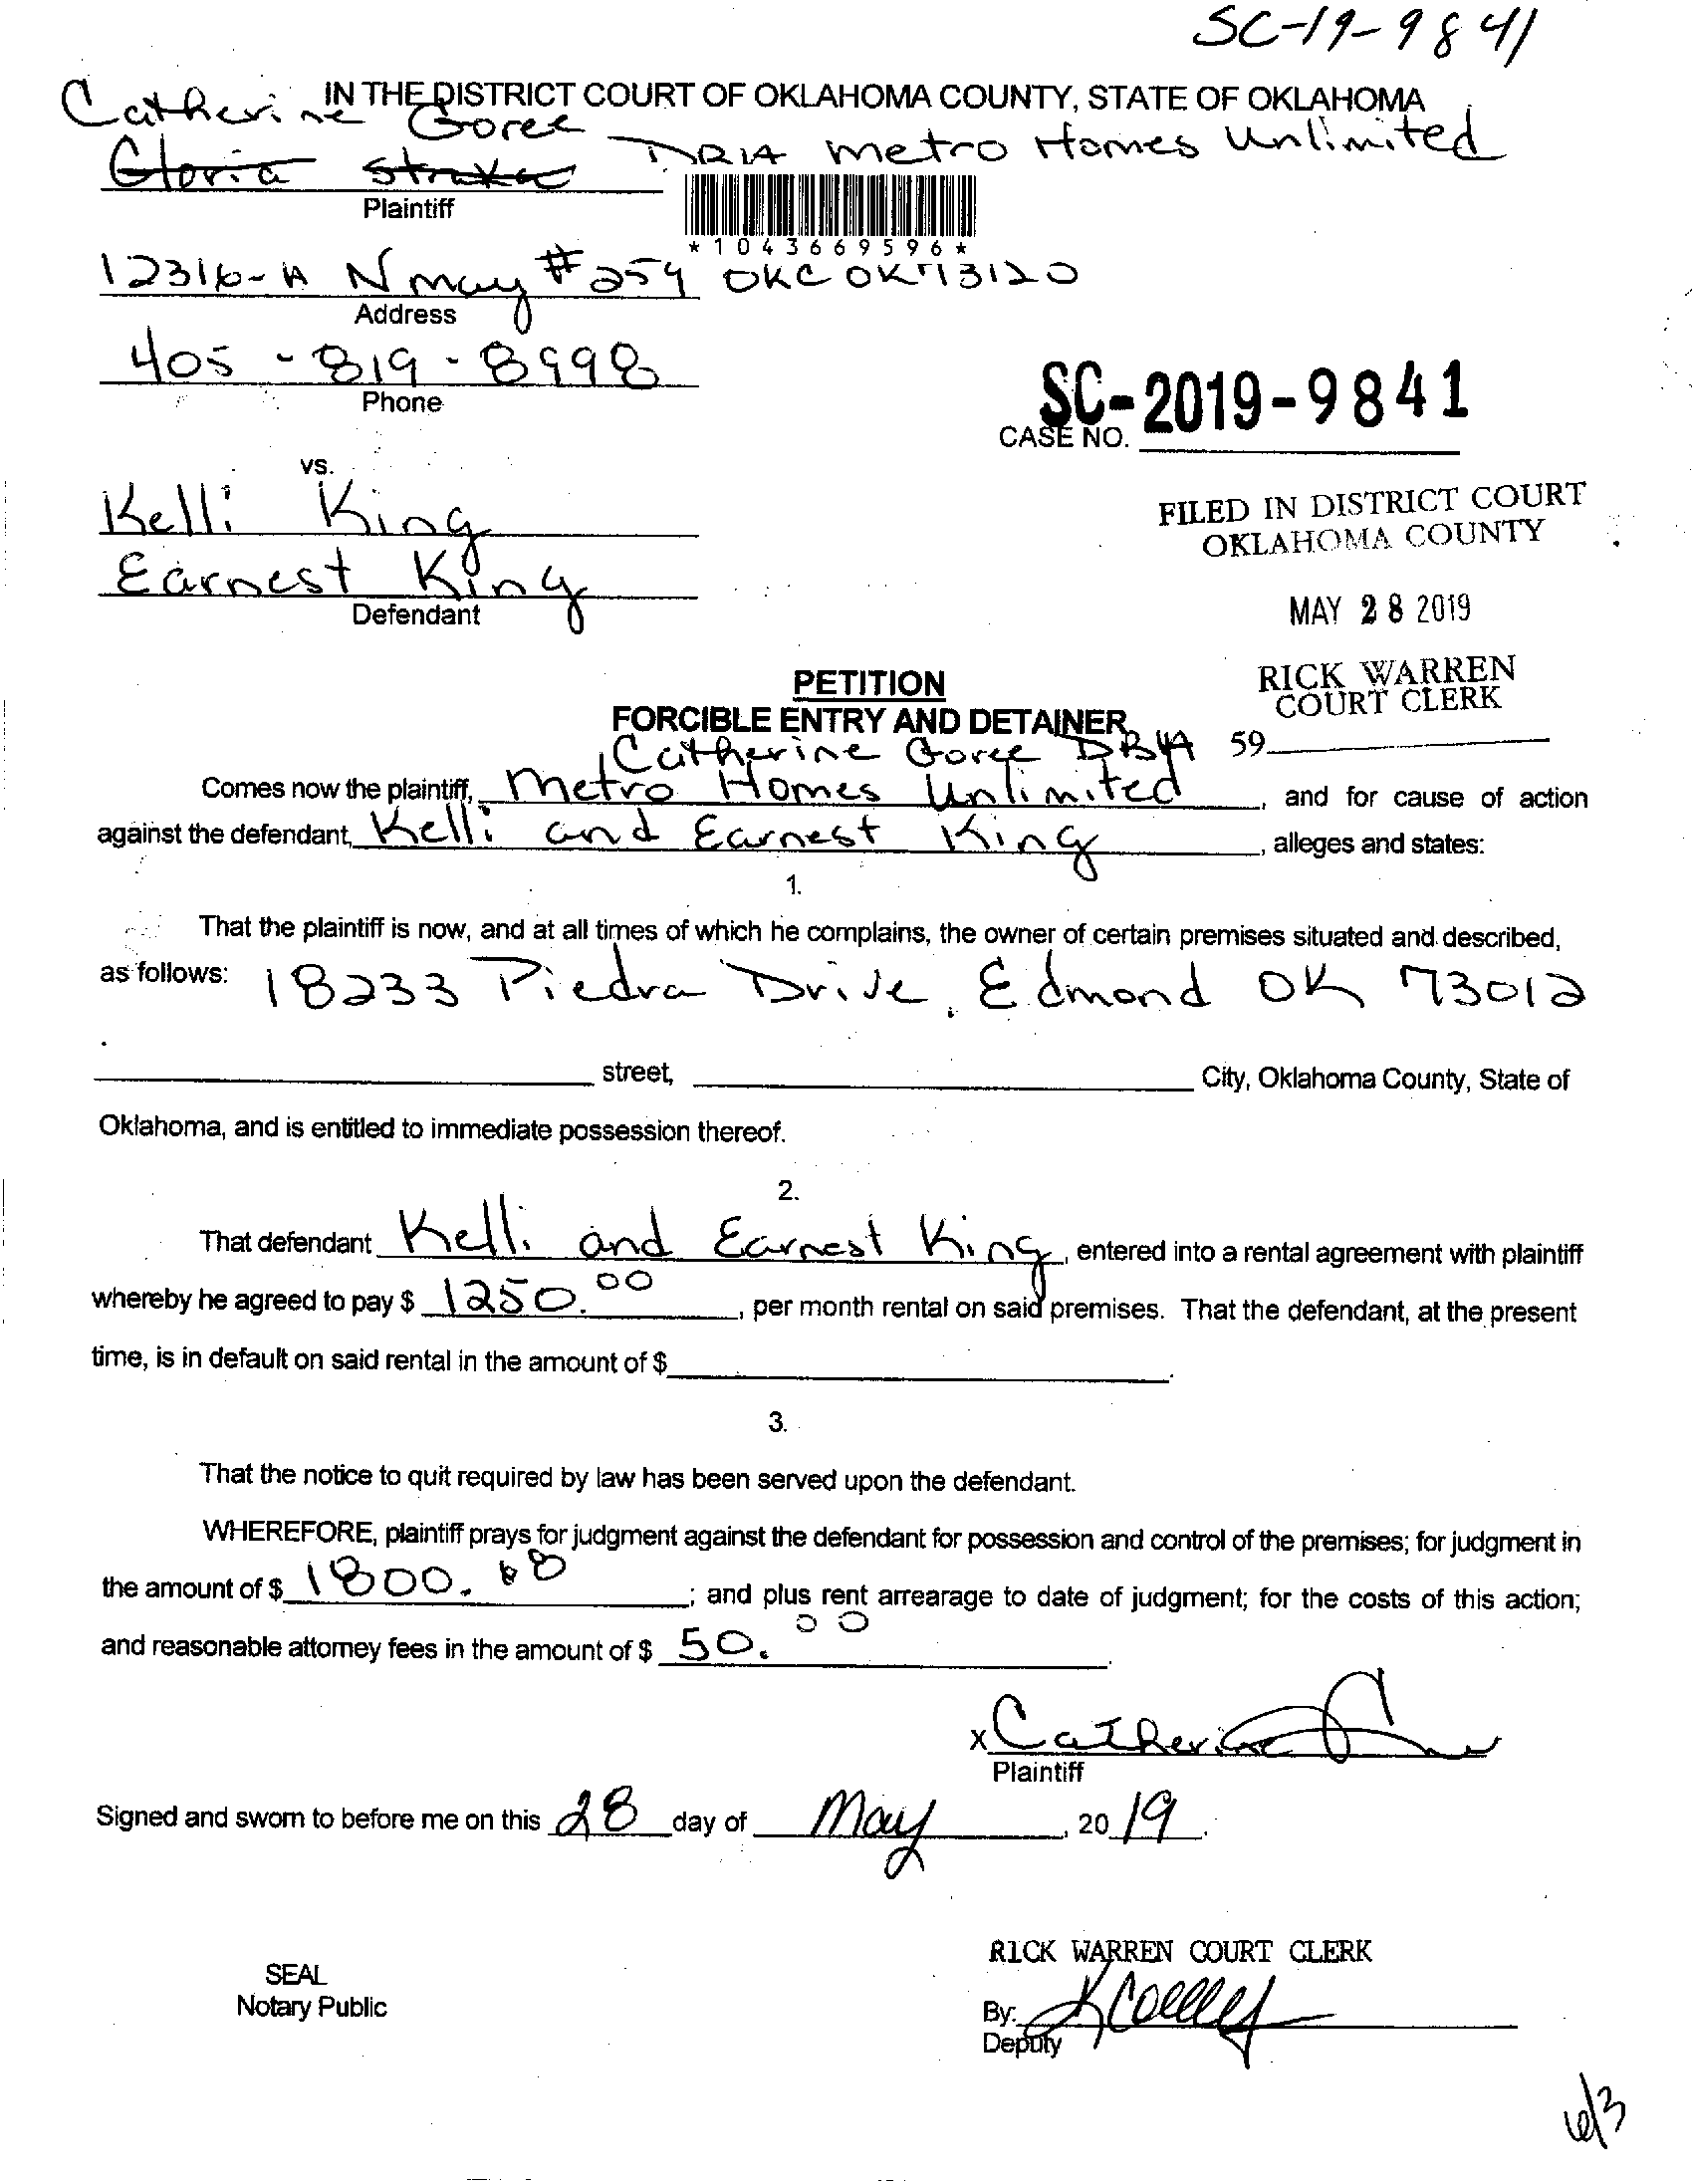 SC-19-9841
IN THE DISTRICT COURT OF OKLAHOMA COUNTY, STATE OF OKLAHOMA
Catherine Goree DBA Metro Homes Unlimited
Gloria
Plaintiff
*1043669596*
12316-A N May #259 OKC OK 73120
Address
405-819-8998
Phone
SC-2019-9841
CASE NO.
vs.
Kelli King
Earnest King
Defendant
FILED IN DISTRICT COURT
OKLAHOMA COUNTY
MAY 28 2019
RICK WARREN
COURT CLERK
59
PETITION
FORCIBLE ENTRY AND DETAINER
Catherine Goree DBA
Comes now the plaintiff, Metro Homes Unlimited, and for cause of action
against the defendant, Kelli and Earnest King, alleges and states:
1.
That the plaintiff is now, and at all times of which he complains, the owner of certain premises situated and described,
as follows: 18233 Piedra Drive, Edmond OK 73012
street, City, Oklahoma County, State of
Oklahoma, and is entitled to immediate possession thereof.
2.
That defendant Kelli and Earnest King, entered into a rental agreement with plaintiff
whereby he agreed to pay $ 1250.00, per month rental on said premises. That the defendant, at the present
time, is in default on said rental in the amount of $ .
3.
That the notice to quit required by law has been served upon the defendant.
WHEREFORE, plaintiff prays for judgment against the defendant for possession and control of the premises; for judgment in
the amount of $ 1800. ; and plus rent arrearage to date of judgment; for the costs of this action;
and reasonable attorney fees in the amount of $ 50.00.
x Catherine
Plaintiff
Signed and sworn to before me on this 28 day of May, 2019.
RICK WARREN COURT CLERK
SEAL
Notary Public
By:
Deputy
6/3